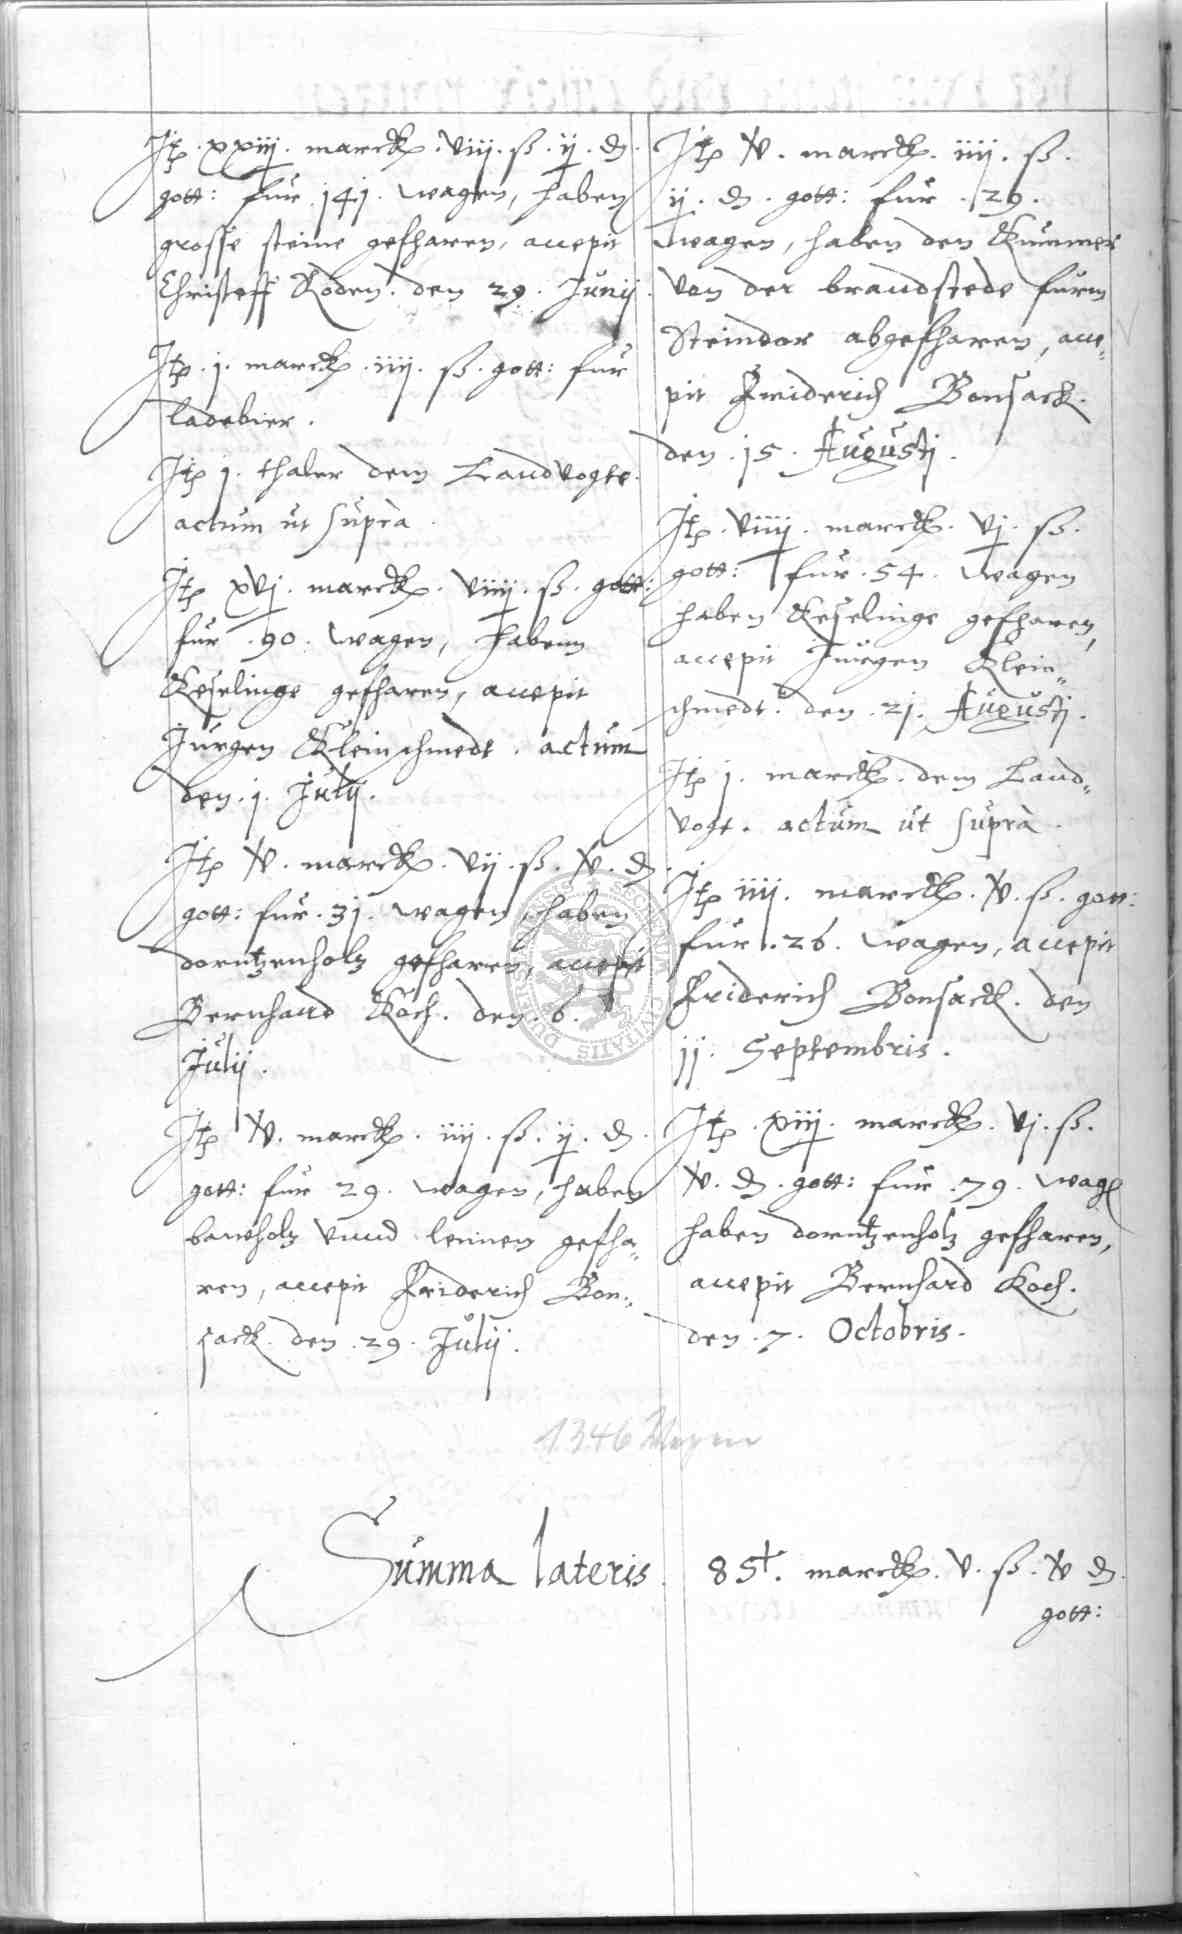 Itp. xxiij. marck. viij. ß. ij. ₰.
gott: fur 141. wagen, haben
grosse steine gefharen, accepit
Christoff Roden. den 29. Junij.
Itp. j. marck. iiij. ß. gott: fur
ladebier.
Itp j. thaler dem Landvogte.
actum ut supra.
Itp xvj. marck. viiij. ß. gott:
fur 90. wagen, habenn
Keselinge gefharen, accepit
Jurgen Kleinschmedt. actum
den. j. Julij.
Itp v. marck. vij. ß. v. ₰
gott: fur. 31. wagen, haben
dorntzenholtz gefharen, accepit
Bernhard Koch. den. 6.
Julij.
Itp v. marck. iiij. ß. ij. ₰.
gott: fur 29. wagen, haben
bauholtz vnnd leimen gefha„
ren, accepit Friderich Bon„
sack. den. 29. Julij.
Itp v. marck. iiij. ß.
ij. ₰. gott: fur. 29.
wagen, haben den Kummer
von der brandstede furm
Steindor abgefharen, acce„
pit Friderich Bonsack.
den. 15. Augusti.
Itp. viiij. marck. vj. ß.
gott: fur. 54. wagen
haben Keselinge gefharen,
accepit Jurgen Klein„
schmedt. den. 21. Augusti.
Itp j. marck. dem Land„
vogt. actum ut supra.
Itp iiij. marck. v. ß. gott:
fur. 26. wagen, accepit
Friderich Bonsack. den
11. Septembris.
Itp. xiij. marck. vj. ß.
v. ₰. gott: fur. 79. wag
haben dorntzenholtz gefharen,
accepit Bernhard Koch.
den. 7. Octobris.
1346 Wagen
Summa lateris. 85½. marck. v. ß. v ₰.
gott: